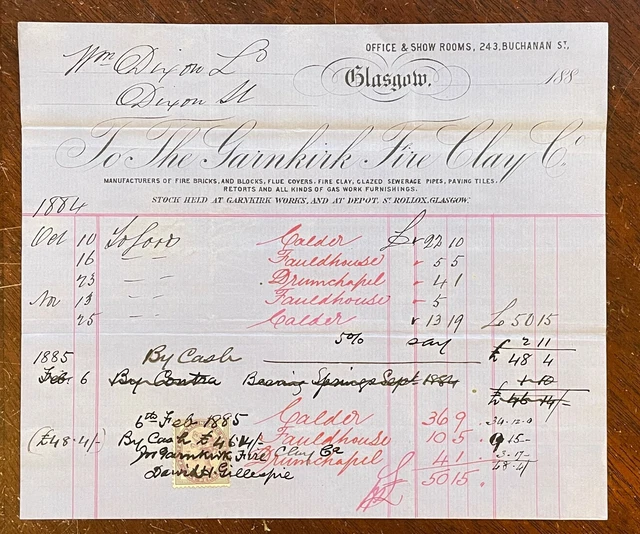 Wm Dixon Ld
Dixon St
OFFICE & SHOW ROOMS, 243, BUCHANAN ST,
Glasgow. 188
To The Garnkirk Fire Clay Co.
MANUFACTURERS OF FIRE BRICKS, AND BLOCKS, FLUE COVERS, FIRE CLAY, GLAZED SEWERAGE PIPES, PAVING TILES,
RETORTS AND ALL KINDS OF GAS WORK FURNISHINGS.
STOCK HELD AT GARNKIRK WORKS, AND AT DEPOT, ST ROLLOX, GLASGOW.
1884
Oct 10 To Goods Calder £ 22 10
16 " " Fauldhouse 5 5
23 " " Drumchapel 4 1
Nov 13 " " Fauldhouse 5
25 " " Calder 13 19 £ 50 15
5% say £ 2 11
1885 By Cash £ 48 4
Feb. 6 By Contra Bearing Springs Sept 1884 £ 1 10
£ 46 14/-
6th Feb 1885 Calder 36 9 34.12.9
(£48.4/-) By Cash £46.14/- Fauldhouse 10 5 9 15-
Garnkirk Fire Clay Co Drumchapel 4 1 3.17-
David H. Gillespie £ 50 15 48.4/